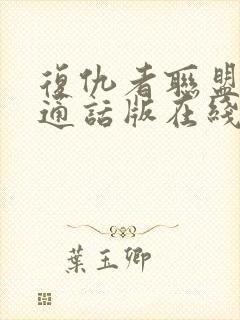 復仇者聯盟
通話版在綫
葉玉卿